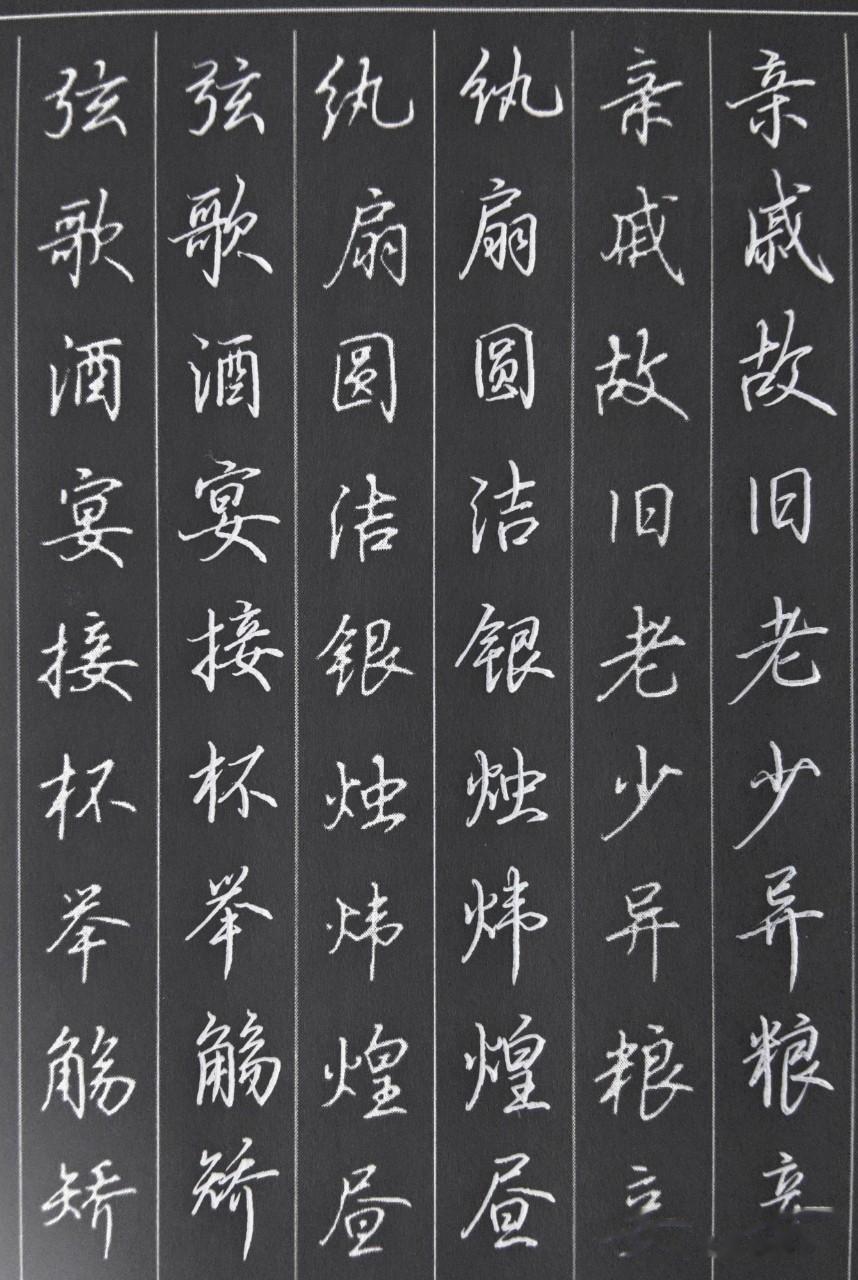 亲戚故旧老少异粮
亲戚故旧老少异粮
纨扇圆洁银烛炜煌昼
纨扇圆洁银烛炜煌昼
弦歌酒宴接杯举觞矫
弦歌酒宴接杯举觞矫